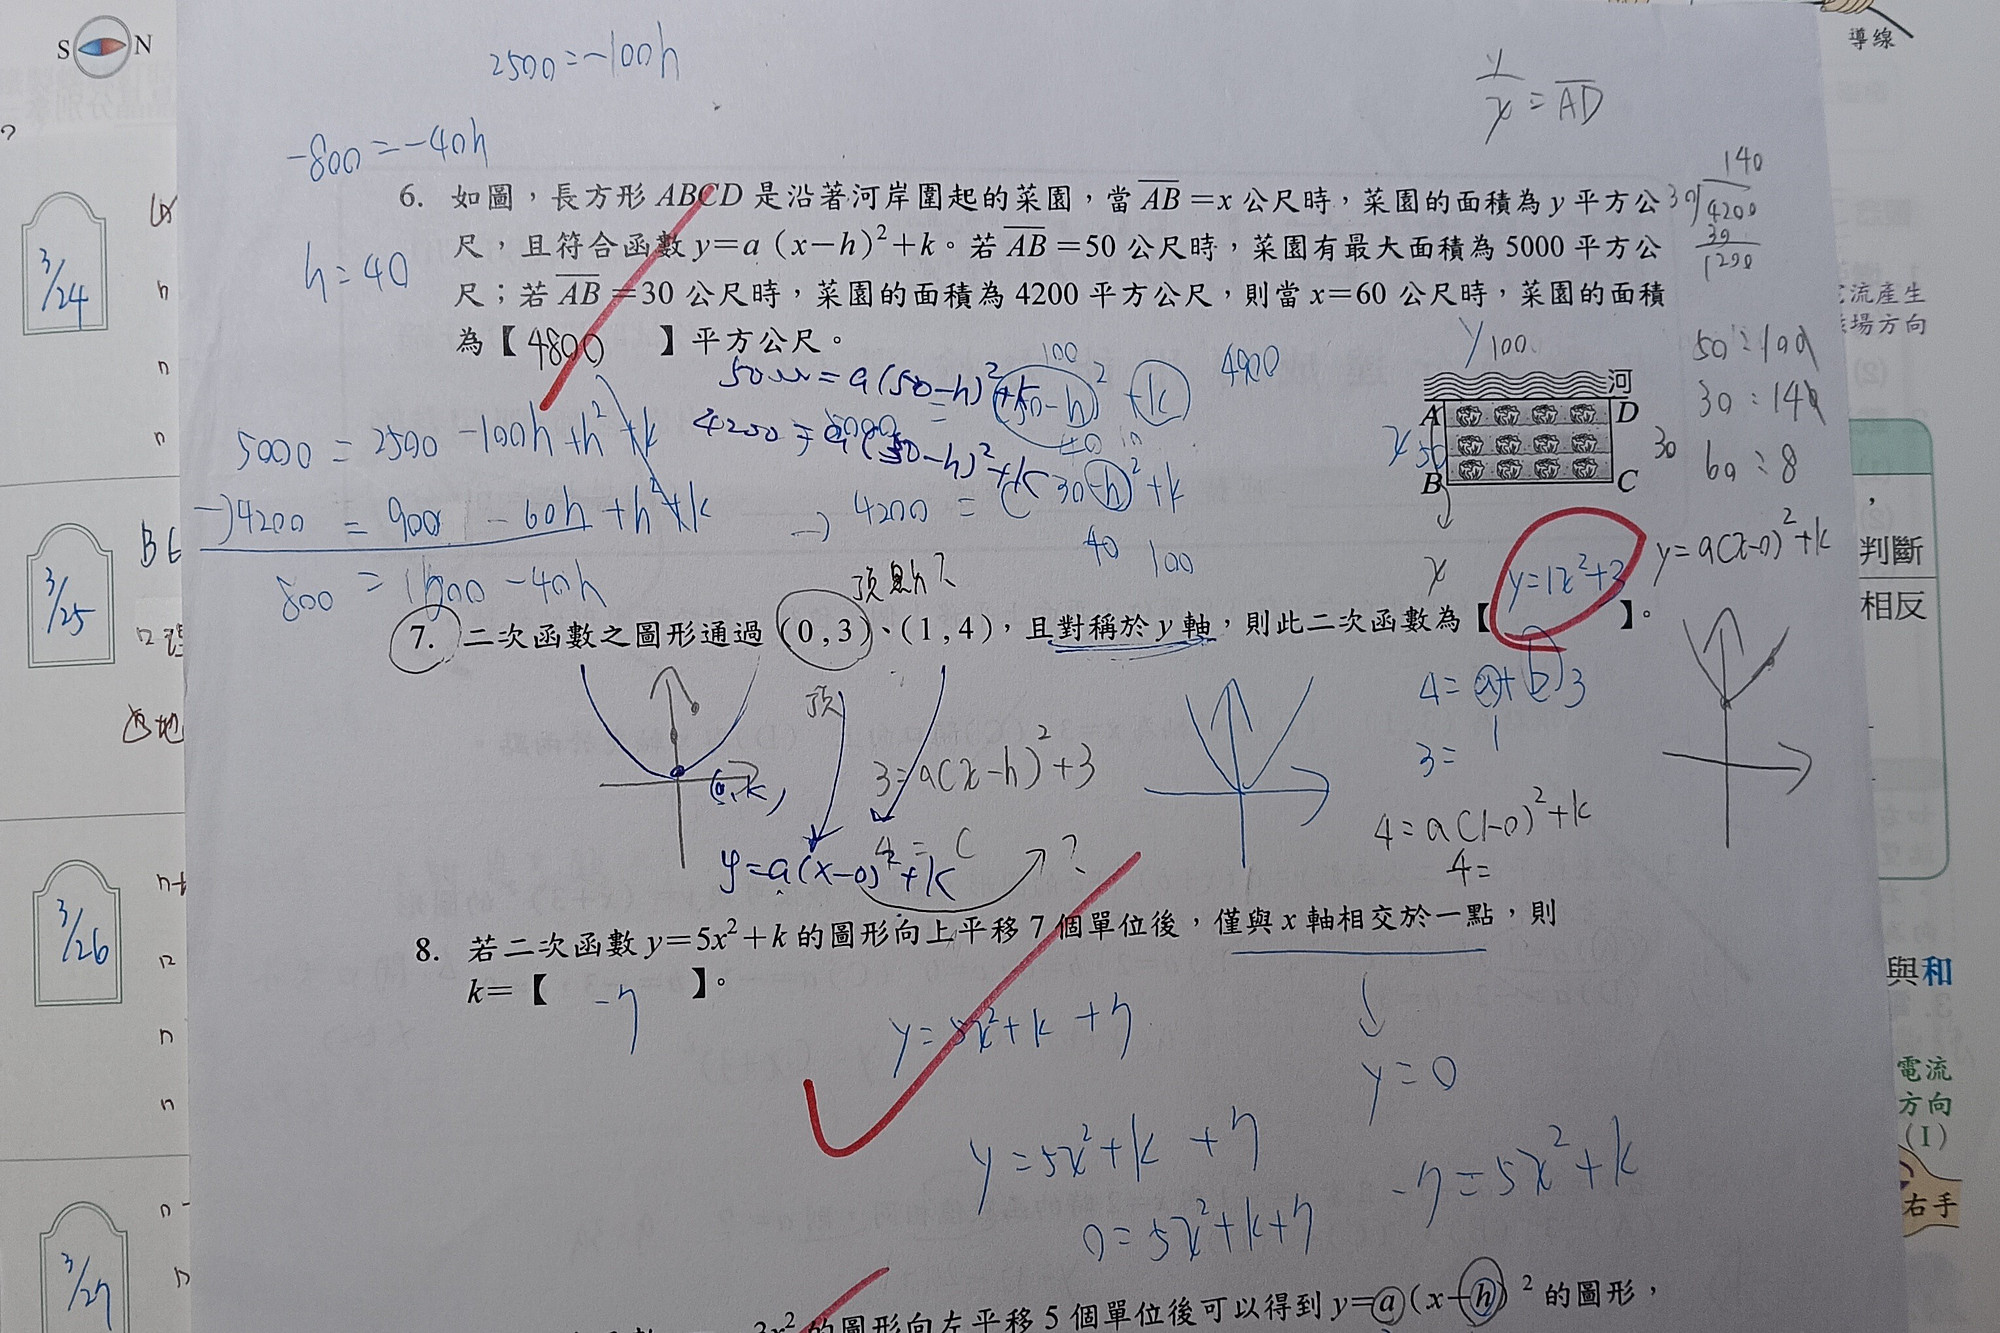 S N
導線
2500=-100h
y/x = AD
-800=-40h
h=40
140
30)4200
30
1200
6. 如圖，長方形 ABCD 是沿著河岸圍起的菜園，當 AB=x 公尺時，菜園的面積為 y 平方公
尺，且符合函數 y=a（x-h）²+k。若 AB=50 公尺時，菜園有最大面積為 5000 平方公
尺；若 AB=30 公尺時，菜園的面積為 4200 平方公尺，則當 x=60 公尺時，菜園的面積
為【4800】平方公尺。
流產生
場方向
(2)
3/24
y 100
河
A D
x 50
B C
30
x
50:100
30:140
60:8
100
4900
5000=2500-100h+h²+k
-)4200=900-60h+h²+k
800=1600-40h
4200=(30-h)²+k
40 100
頂點?
y=1x²+3
y=a(x-0)²+k
判斷
相反
3/25
7. 二次函數之圖形通過 (0,3)、(1,4)，且對稱於 y 軸，則此二次函數為【】。
頂
(0,k)
3=a(x-h)²+3
4=(
y=a(x-0)²+k
?
4=a+b 3
3=
4=a(1-0)²+k
4=
3/26
8. 若二次函數 y=5x²+k 的圖形向上平移 7 個單位後，僅與 x 軸相交於一點，則
k=【-7】。
與和
y=5x²+k+7
y=0
y=5x²+k+7
-7=5x²+k
0=5x²+k+7
電流
方向
(I)
右手
3/27
3x² 的圖形向左平移 5 個單位後可以得到 y=a(x-h)² 的圖形，